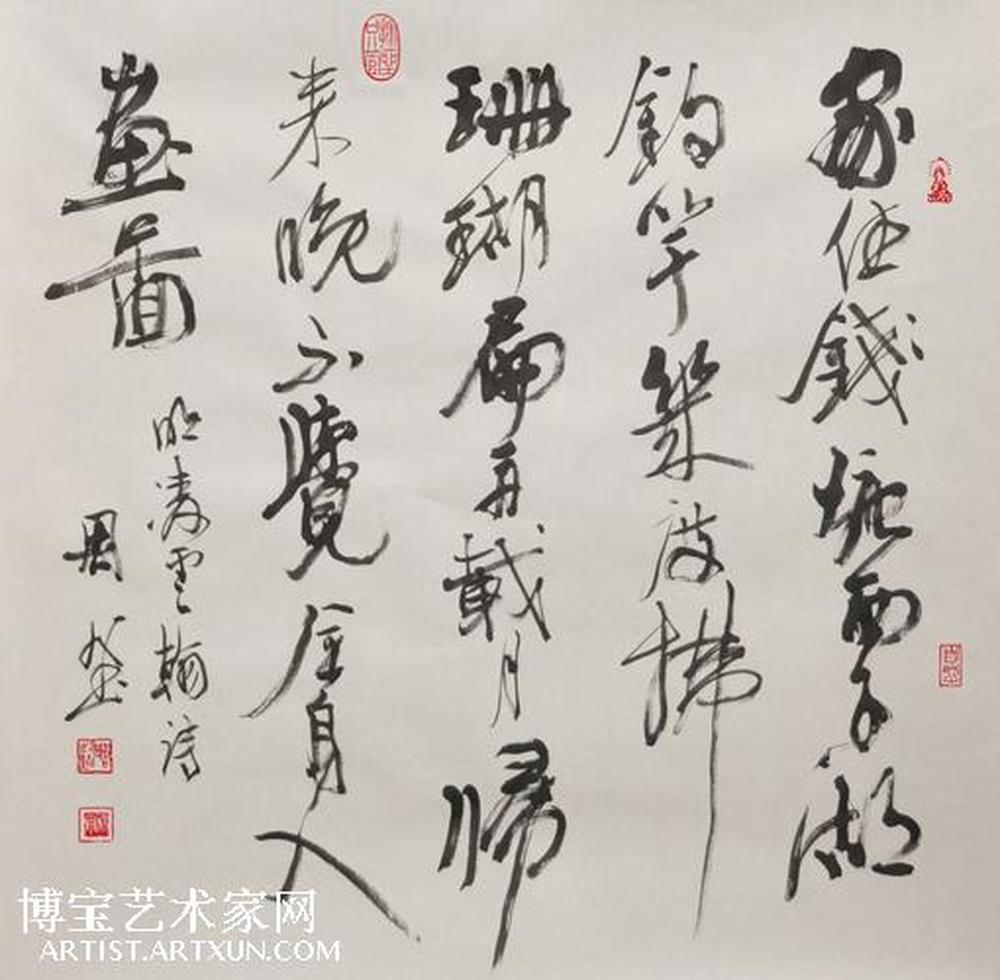 家住錢塘西子湖
釣竿幾度拂
珊瑚扁舟載月歸
来晚不覺全身入
畫圖
明凌雲翰詩
周
博宝艺术家网
ARTIST.ARTXUN.COM